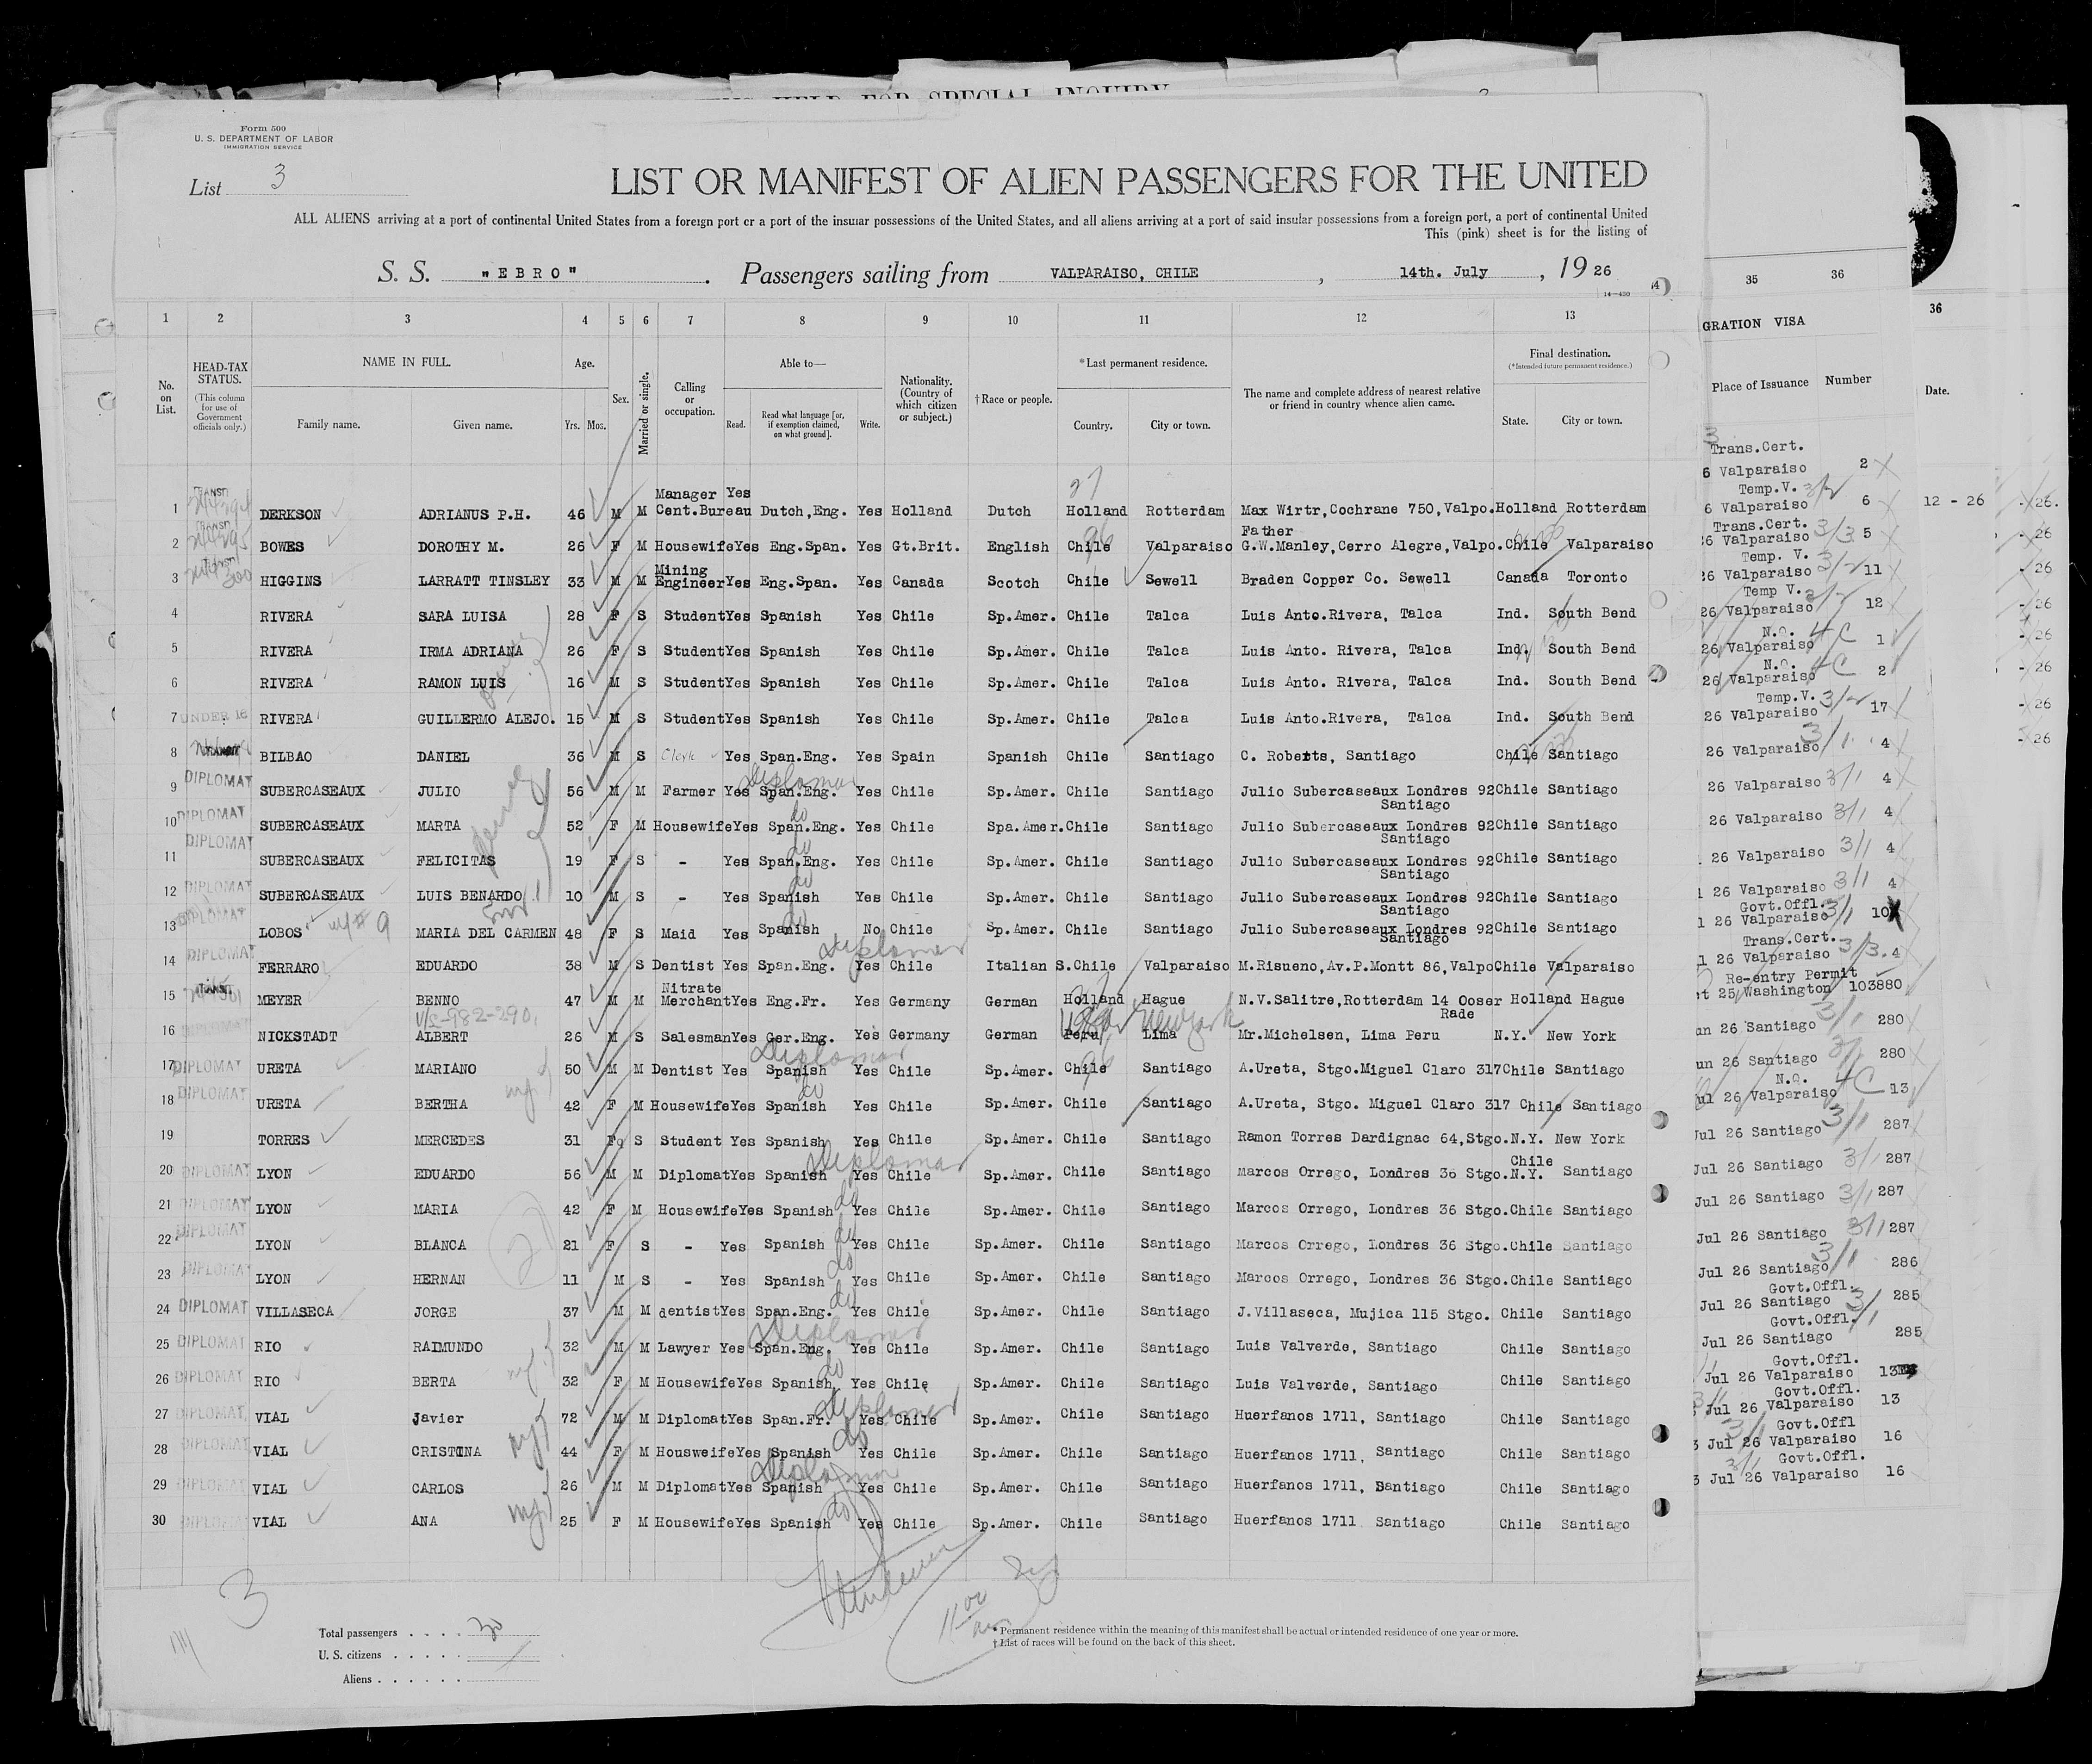 Form 500
U. S. DEPARTMENT OF LABOR
IMMIGRATION SERVICE
List 3
LIST OR MANIFEST OF ALIEN PASSENGERS FOR THE UNITED
ALL ALIENS arriving at a port of continental United States from a foreign port or a port of the insular possessions of the United States, and all aliens arriving at a port of said insular possessions from a foreign port, a port of continental United
This (pink) sheet is for the listing of
S. S. "EBRO" . Passengers sailing from VALPARAISO, CHILE , 14th. July , 19 26
14—430
1 2 3 4 5 6 7 8 9 10 11 12 13 35 36 36
GRATION VISA
No. on List.
HEAD-TAX STATUS. (This column for use of Government officials only.)
NAME IN FULL. Family name. Given name.
Age. Yrs. Mos.
Sex.
Married or single.
Calling or occupation.
Able to— Read. Read what language [or, if exemption claimed, on what ground]. Write.
Nationality. (Country of which citizen or subject.)
†Race or people.
*Last permanent residence. Country. City or town.
The name and complete address of nearest relative or friend in country whence alien came.
Final destination. (*Intended future permanent residence.) State. City or town.
Place of Issuance Number Date.
1 TRANSIT DERKSON ADRIANUS P.H. 46 M M Manager Cent.Bureau Yes Dutch,Eng. Yes Holland Dutch Holland Rotterdam Max Wirtr,Cochrane 750,Valpo. Holland Rotterdam
2 TRANSIT BOWES DOROTHY M. 26 F M Housewife Yes Eng.Span. Yes Gt.Brit. English Chile Valparaiso Father G.W.Manley,Cerro Alegre,Valpo. Chile Valparaiso
3 TRANSIT HIGGINS LARRATT TINSLEY 33 M M Mining Engineer Yes Eng.Span. Yes Canada Scotch Chile Sewell Braden Copper Co. Sewell Canada Toronto
4 RIVERA SARA LUISA 28 F S Student Yes Spanish Yes Chile Sp.Amer. Chile Talca Luis Anto.Rivera, Talca Ind. South Bend
5 RIVERA IRMA ADRIANA 26 F S Student Yes Spanish Yes Chile Sp.Amer. Chile Talca Luis Anto. Rivera, Talca Ind. South Bend
6 RIVERA RAMON LUIS 16 M S Student Yes Spanish Yes Chile Sp.Amer. Chile Talca Luis Anto. Rivera, Talca Ind. South Bend
7 UNDER 16 RIVERA GUILLERMO ALEJO. 15 M S Student Yes Spanish Yes Chile Sp.Amer. Chile Talca Luis Anto.Rivera, Talca Ind. South Bend
8 TRANSIT BILBAO DANIEL 36 M S Clerk Yes Span.Eng. Yes Spain Spanish Chile Santiago C. Roberts, Santiago Chile Santiago
9 DIPLOMAT SUBERCASEAUX JULIO 56 M M Farmer Yes Span.Eng. Diplomat Yes Chile Sp.Amer. Chile Santiago Julio Subercaseaux Londres 92 Santiago Chile Santiago
10 DIPLOMAT SUBERCASEAUX MARTA 52 F M Housewife Yes Span.Eng. do Yes Chile Spa.Amer. Chile Santiago Julio Subercaseaux Londres 92 Santiago Chile Santiago
11 DIPLOMAT SUBERCASEAUX FELICITAS 19 F S - Yes Span.Eng. do Yes Chile Sp.Amer. Chile Santiago Julio Subercaseaux Londres 92 Santiago Chile Santiago
12 DIPLOMAT SUBERCASEAUX LUIS BENARDO 10 M S - Yes Spanish do Yes Chile Sp.Amer. Chile Santiago Julio Subercaseaux Londres 92 Santiago Chile Santiago
13 DIPLOMAT LOBOS 9 MARIA DEL CARMEN 48 F S Maid Yes Spanish do No Chile Sp.Amer. Chile Santiago Julio Subercaseaux Londres 92 Santiago Chile Santiago
14 DIPLOMAT FERRARO EDUARDO 38 M S Dentist Yes Span.Eng. Diplomat Yes Chile Italian S. Chile Valparaiso M.Risueno,Av.P.Montt 86,Valpo Chile Valparaiso
15 TRANSIT MEYER BENNO 47 M M Nitrate Merchant Yes Eng.Fr. Yes Germany German Holland Hague N.V.Salitre,Rotterdam 14 Ooser Rade Holland Hague
16 DIPLOMAT NICKSTADT ALBERT 26 M S Salesman Yes Ger.Eng. Yes Germany German Peru Lima New York Mr.Michelsen, Lima Peru N.Y. New York
17 DIPLOMAT URETA MARIANO 50 M M Dentist Yes Spanish Diplomat Yes Chile Sp.Amer. Chile Santiago A.Ureta, Stgo.Miguel Claro 317 Chile Santiago
18 DIPLOMAT URETA BERTHA 42 F M Housewife Yes Spanish do Yes Chile Sp.Amer. Chile Santiago A.Ureta, Stgo. Miguel Claro 317 Chile Santiago
19 TORRES MERCEDES 31 F S Student Yes Spanish Yes Chile Sp.Amer. Chile Santiago Ramon Torres Dardignac 64,Stgo. N.Y. New York
20 DIPLOMAT LYON EDUARDO 56 M M Diplomat Yes Spanish Diplomat Yes Chile Sp.Amer. Chile Santiago Marcos Orrego, Londres 36 Stgo. Chile N.Y. Santiago
21 DIPLOMAT LYON MARIA 42 F M Housewife Yes Spanish do Yes Chile Sp.Amer. Chile Santiago Marcos Orrego, Londres 36 Stgo. Chile Santiago
22 DIPLOMAT LYON BLANCA 21 F S - Yes Spanish do Yes Chile Sp.Amer. Chile Santiago Marcos Orrego, Londres 36 Stgo. Chile Santiago
23 DIPLOMAT LYON HERNAN 11 M S - Yes Spanish do Yes Chile Sp.Amer. Chile Santiago Marcos Orrego, Londres 36 Stgo. Chile Santiago
24 DIPLOMAT VILLASECA JORGE 37 M M dentist Yes Span.Eng. do Yes Chile Sp.Amer. Chile Santiago J.Villaseca, Mujica 115 Stgo. Chile Santiago
25 DIPLOMAT RIO RAIMUNDO 32 M M Lawyer Yes Span.Eng. Diplomat Yes Chile Sp.Amer. Chile Santiago Luis Valverde, Santiago Chile Santiago
26 DIPLOMAT RIO BERTA 32 F M Housewife Yes Spanish do Yes Chile Sp.Amer. Chile Santiago Luis Valverde, Santiago Chile Santiago
27 DIPLOMAT VIAL Javier 72 M M Diplomat Yes Span.Fr. Diplomat Yes Chile Sp.Amer. Chile Santiago Huerfanos 1711, Santiago Chile Santiago
28 DIPLOMAT VIAL CRISTINA 44 F M Housweife Yes Spanish do Yes Chile Sp.Amer. Chile Santiago Huerfanos 1711, Santiago Chile Santiago
29 DIPLOMAT VIAL CARLOS 26 M M Diplomat Yes Spanish Diplomat Yes Chile Sp.Amer. Chile Santiago Huerfanos 1711, Santiago Chile Santiago
30 DIPLOMAT VIAL ANA 25 F M Housewife Yes Spanish do Yes Chile Sp.Amer. Chile Santiago Huerfanos 1711 Santiago Chile Santiago
3
Total passengers . . . . 30
U. S. citizens . . . . .
Aliens . . . . . .
*Permanent residence within the meaning of this manifest shall be actual or intended residence of one year or more.
†List of races will be found on the back of this sheet.
Trans.Cert.
6 Valparaiso 2
Temp.V. 3/2
6 Valparaiso 6 12 - 26 - 26.
Trans.Cert. 3/3
26 Valparaiso 5 - 26
Temp. V. 3/2
26 Valparaiso 11 - 26
Temp V. 3/2
26 Valparaiso 12 - 26
N.Q. 4C
26 Valparaiso 1 - 26
N.Q. 4C
26 Valparaiso 2 - 26
Temp.V. 3/2
26 Valparaiso 17 - 26
26 Valparaiso 3/1 4 - 26
26 Valparaiso 3/1 4
26 Valparaiso 3/1 4
26 Valparaiso 3/1 4
1 26 Valparaiso 3/1 4
Govt.Offl.
1 26 Valparaiso 3/1 10
Trans.Cert.
1 26 Valparaiso 3/3 4
Re-entry Permit
t 25 Washington 103880
un 26 Santiago 3/1 280
un 26 Santiago 3/1 280
N.Q. 4C
ul 26 Valparaiso 13
Jul 26 Santiago 3/1 287
Jul 26 Santiago 3/1 287
Jul 26 Santiago 3/1 287
Jul 26 Santiago 3/1 287
Jul 26 Santiago 3/1 286
Govt.Offl.
Jul 26 Santiago 3/1 285
Govt.Offl.
Jul 26 Santiago 285
Govt.Offl.
Jul 26 Valparaiso 13
Govt.Offl.
Jul 26 Valparaiso 13
Govt.Offl
3 Jul 26 Valparaiso 16
Govt.Offl.
3 Jul 26 Valparaiso 16